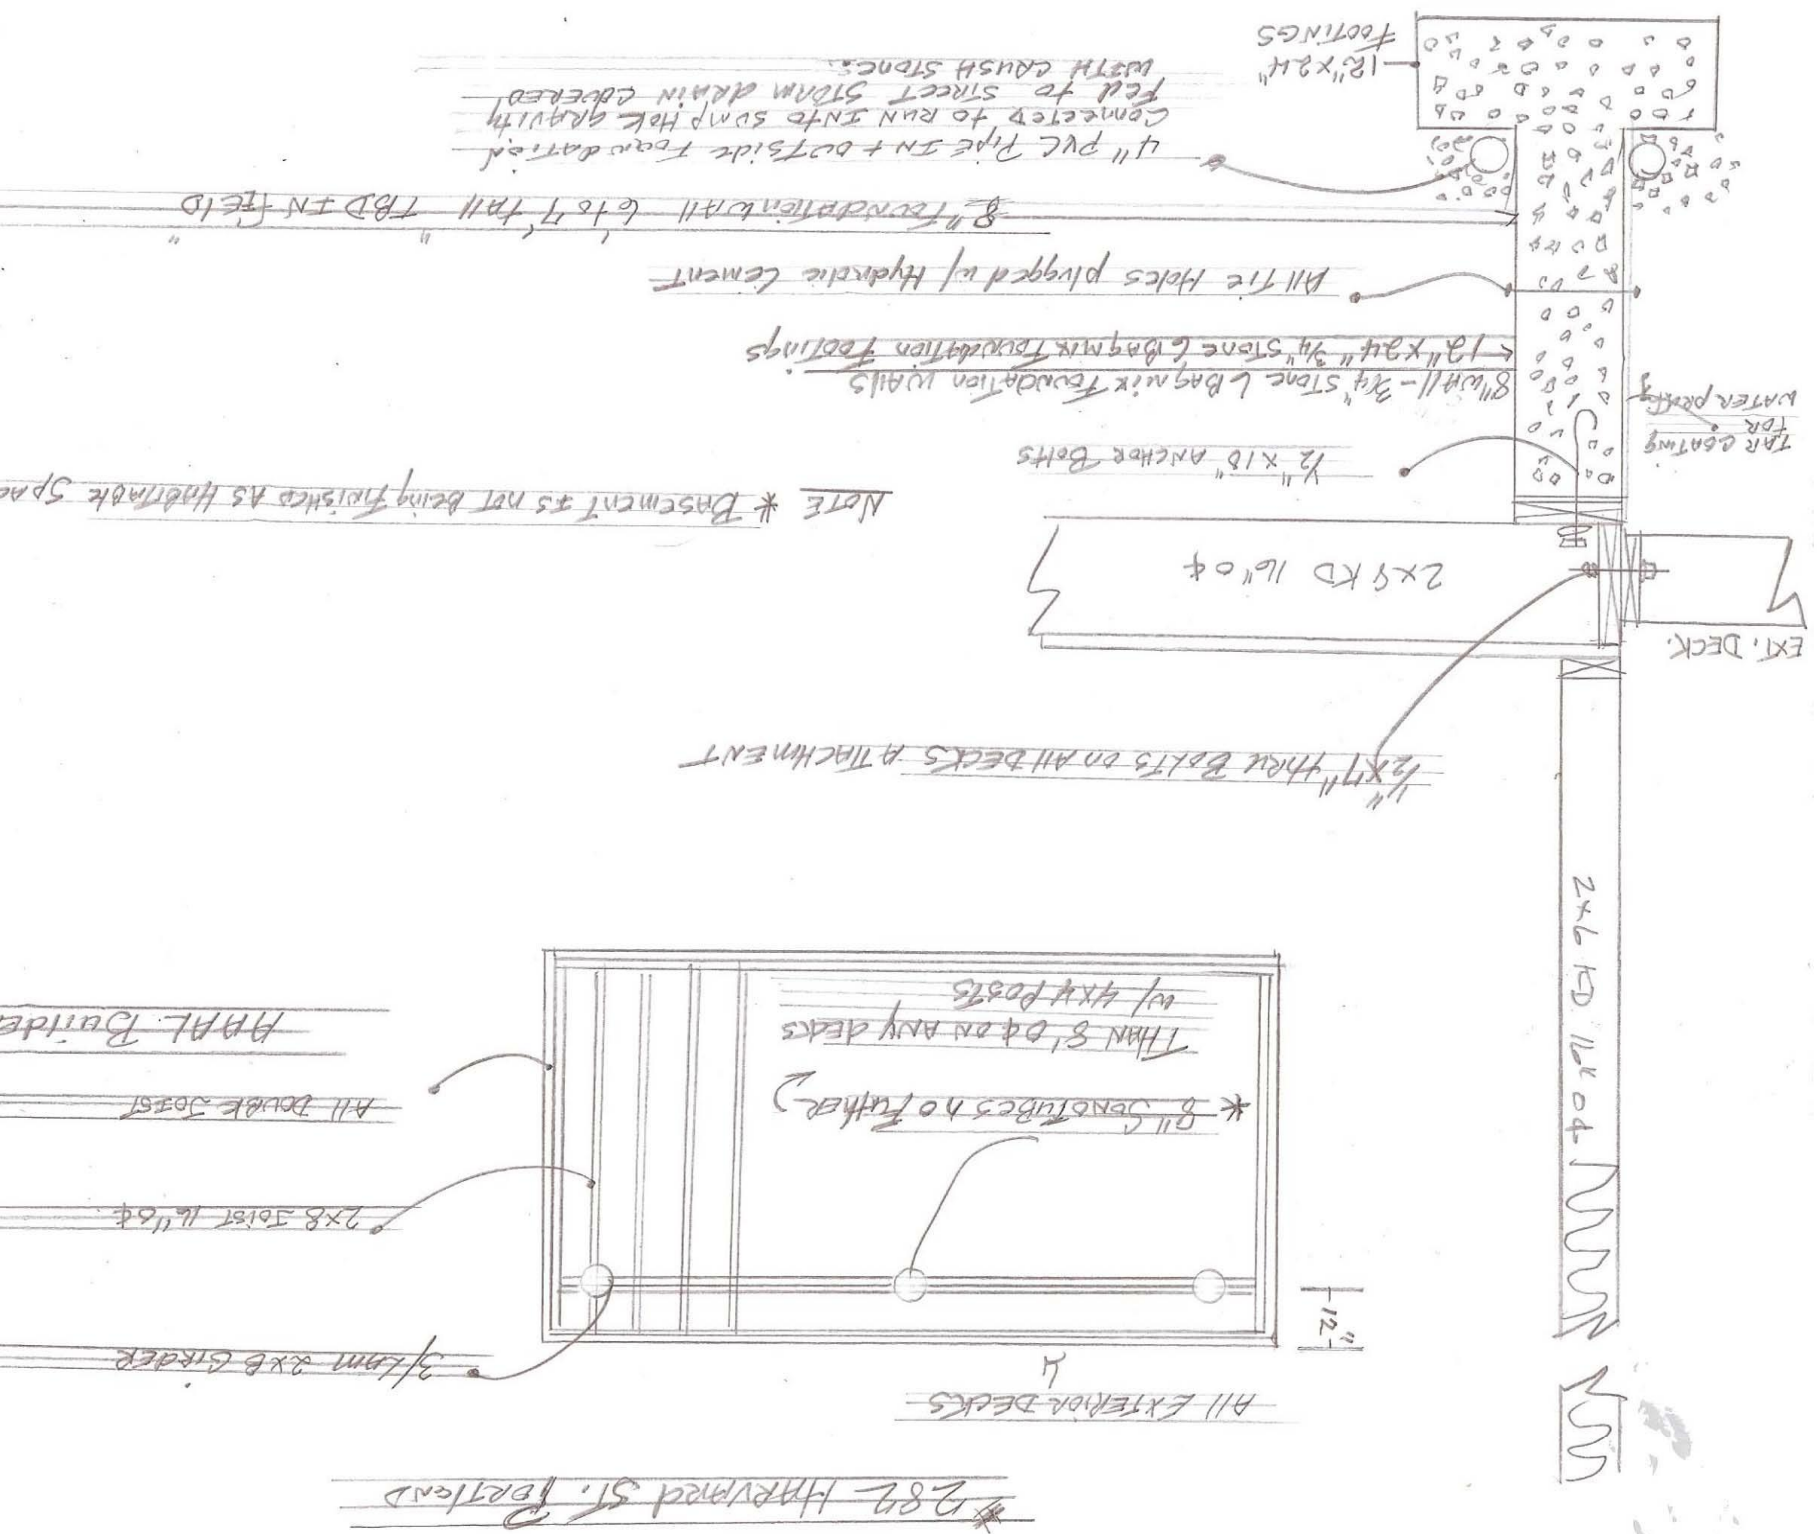 * 282 HARVARD ST. PORTLAND
All EXTERIOR DECKS
12"
3/LAM 2x8 GIRDER
2x8 JOIST 16" O¢
All DOUBLE JOIST
AAAL Builde
* 8" SONOTUBES NO FUTHER
THAN 8' O¢ ON ANY decks
w/ 4x4 POSTS
2x6 KD 16" O¢
1/2" x 7" THRU BOLTS ON All DECKS ATTACHMENT
EXT. DECK.
2x8 KD 16" O¢
NOTE * BASEMENT IS NOT BEING FINISHED AS HABITABLE SPAC
1/2" x 10" ANCHOR BOLTS
TAR COATING
FOR
WATER PROOFING
8" WALL - 3/4" STONE 6 BAG MIX FOUNDATION WALLS
12" x 24" 3/4" STONE 6 BAG MIX FOUNDATION FOOTINGS
All TIE HOLES plugged w/ Hydrolic Cement
8" FOUNDATION WALL 6' to 7' TALL "TBD IN FIELD"
4" PVC PIPE IN + OUTSIDE FOUNDATION
CONNECTED TO RUN INTO SUMP HOLE GRAVITY
FED TO STREET STORM DRAIN COVERED
WITH CRUSH STONE.
12" x 24"
FOOTINGS